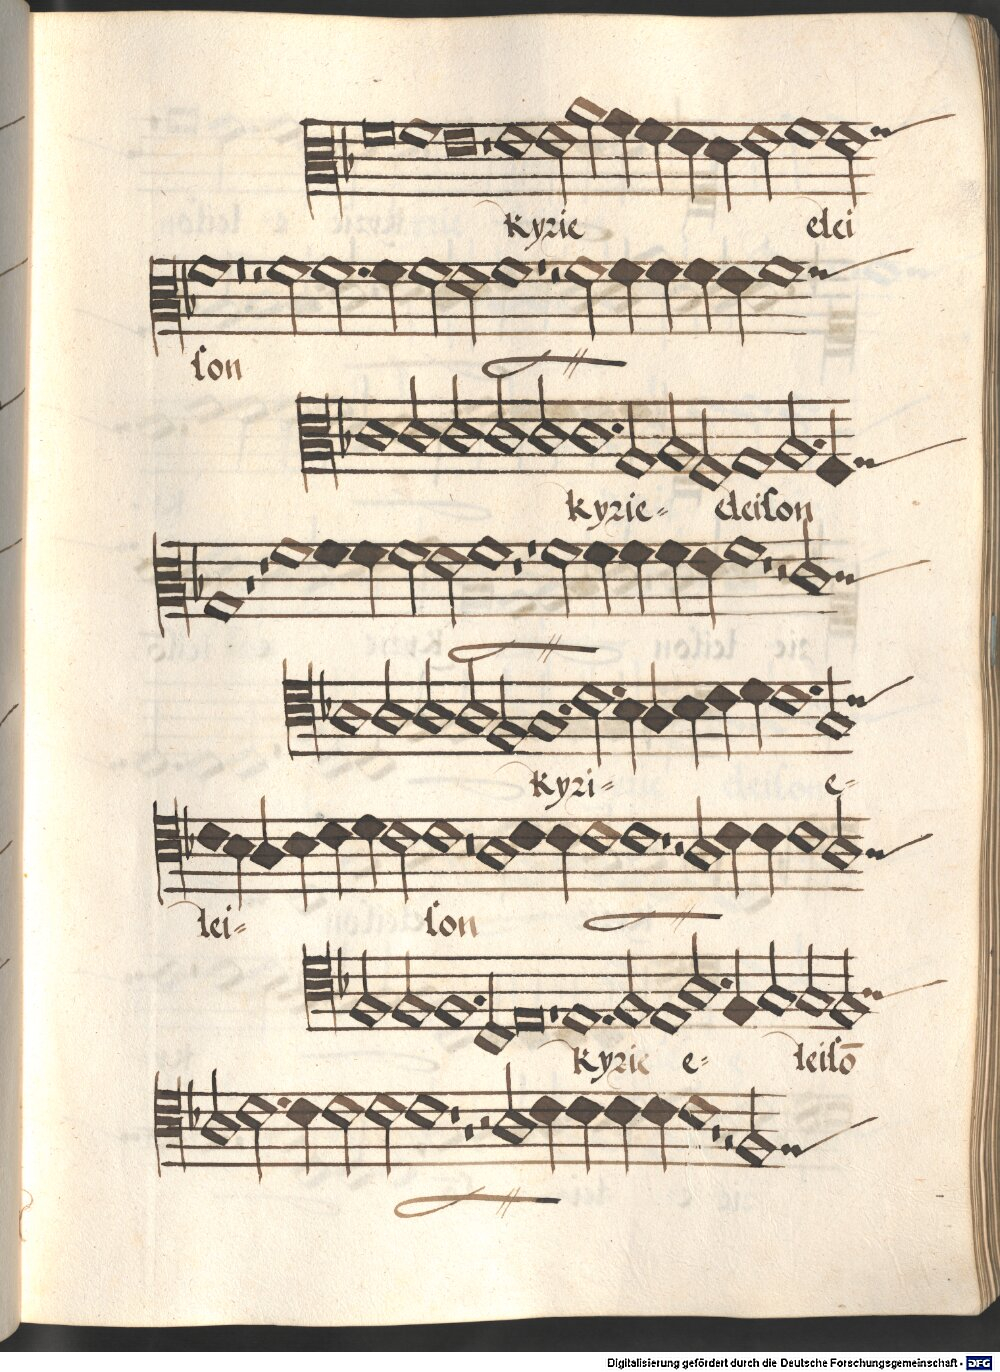 kyrie elei
son
kyrie= eleison
kyri= e=
lei= son
kyrie e= leisō
Digitalisierung gefördert durch die Deutsche Forschungsgemeinschaft - DFG